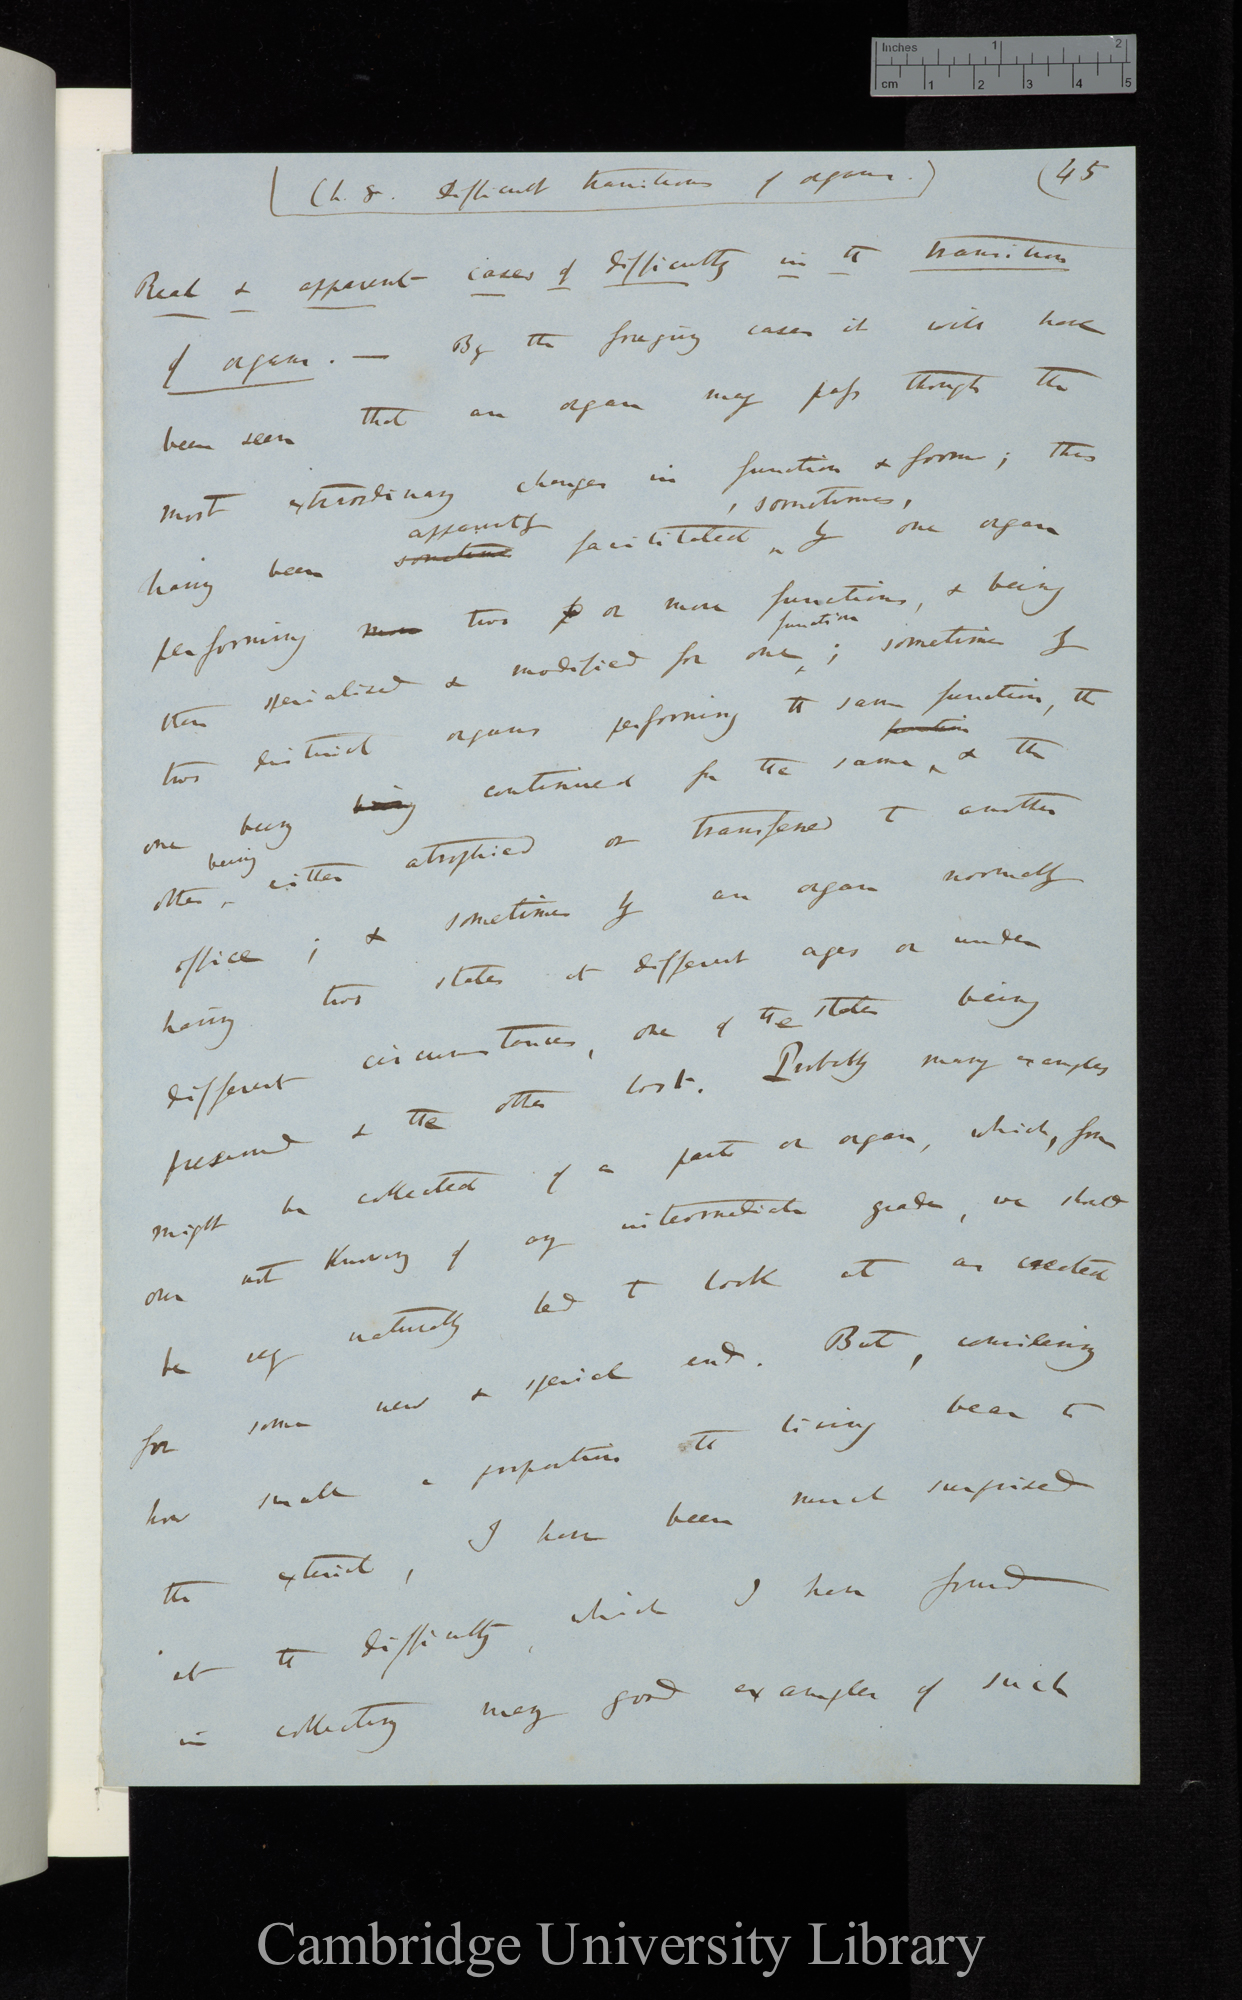 Inches 1 2
cm 1 2 3 4 5
(Ch. 8. Difficult transitions of organs.) (45
Real & apparent cases of difficulty in the transition
of organs. — By the foregoing cases it will have
been seen that an organ may pass through the
most extraordinary changes in function & form; this
having been sometime apparently facilitated, sometimes, by one organ
performing more two or more functions, & being
then specialised & modified for one function; sometime by
two distinct organs performing the same function, the
one being being continued for the same function & the
other being either atrophied or transferred to another
office; & sometimes by an organ normally
having two states at different ages or under
different circumstances, one of the states being
preserved & the other lost. Probably many examples
might be collected of a part or organ, which, from
our not knowing of any intermediate grade, we should
be very naturally led to look at as created
for some new & special end. But, considering
how small a proportion the living bear to
the extinct, I have been much surprised
at the difficulty, which I have found
in collecting many good examples of such
Cambridge University Library